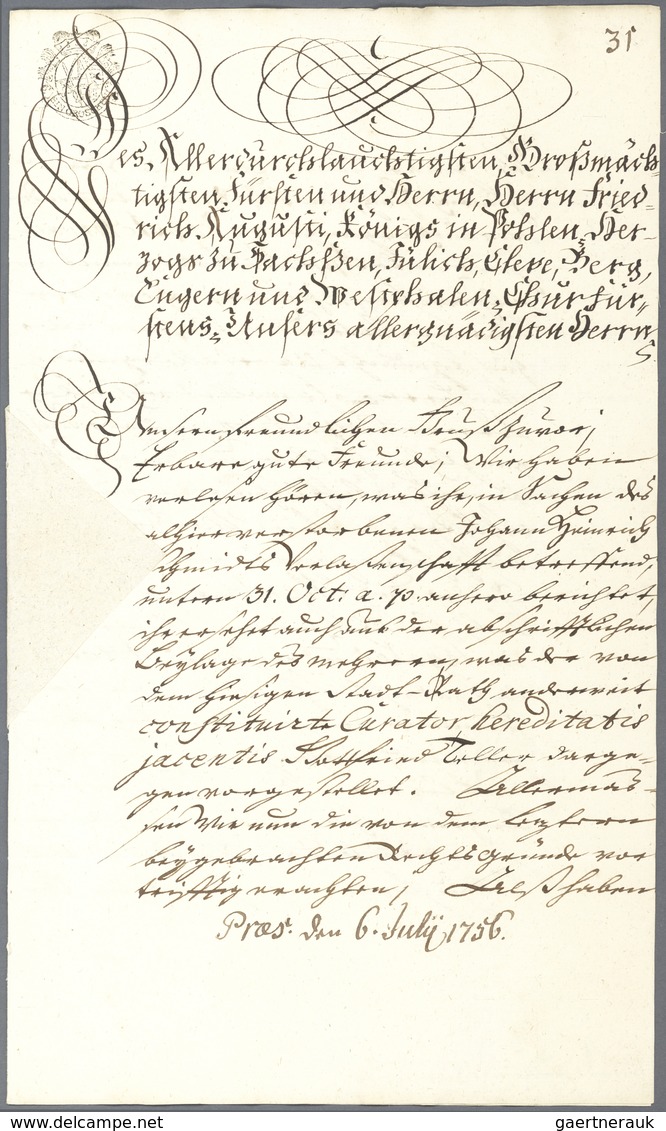 31
Des Allerdurchlauchtigsten, Großmäch-
tigsten Fürsten und Herrn, Herrn Fried-
rich Augusti, Königs in Pohlen, Her-
zogs zu Sachßen, Jülich, Cleve, Berg,
Engern und Westphalen, Churfür-
stens, Unsers allergnädigsten Herrn
Unsern freundlichen Gruß zuvor;
Erbare gute Freunde; Wir haben
verlesen hören, was ihr, in Sachen des
alhier verstorbenen Johann Heinrich
Schmidts Verlaßenschafft betreffend,
unterm 31. Oct: a. p. anhero berichtet,
ihr ersehet auch aus der abschrifftlichen
Beylage des mehrern, was der von
dem hiesigen Stadt-Rath anderweit
constituirte Curator hereditatis
jacentis Gottfried Teller darge-
gen vorgestellet. Allermas-
sen Wir nun die von dem letztern
beygebrachten Rechtsgründe vor
trifftig erachten, Alß haben
Præs. den 6. Julij 1756.
www.delcampe.net
gaertnerauk